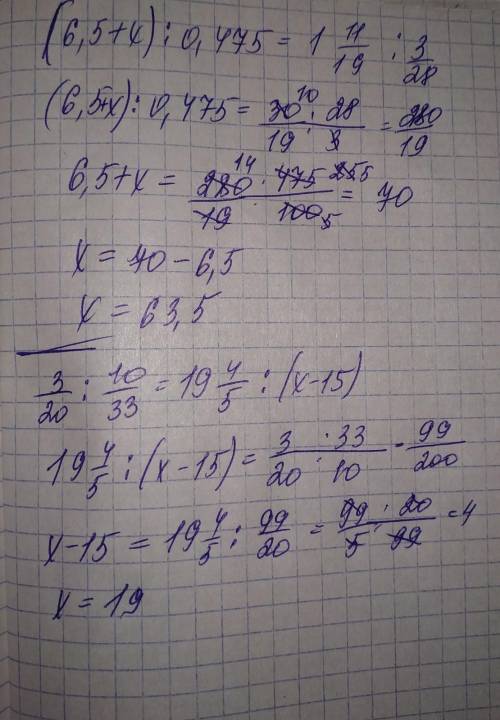 (6,5+x) : 0,475 = 1 11/19 : 3/28
(6,5+x) : 0,475 = 30 10 · 28 / 19 · 3 = 280/19
6,5+x = 280 14 · 475 25 5 / 19 · 100 5 = 70
x = 70 - 6,5
x = 63,5
3/20 : 10/33 = 19 4/5 : (x-15)
19 4/5 : (x-15) = 3 · 33 / 20 · 10 = 99/200
x-15 = 19 4/5 : 99/20 = 99 · 20 / 5 · 99 = 4
x = 19